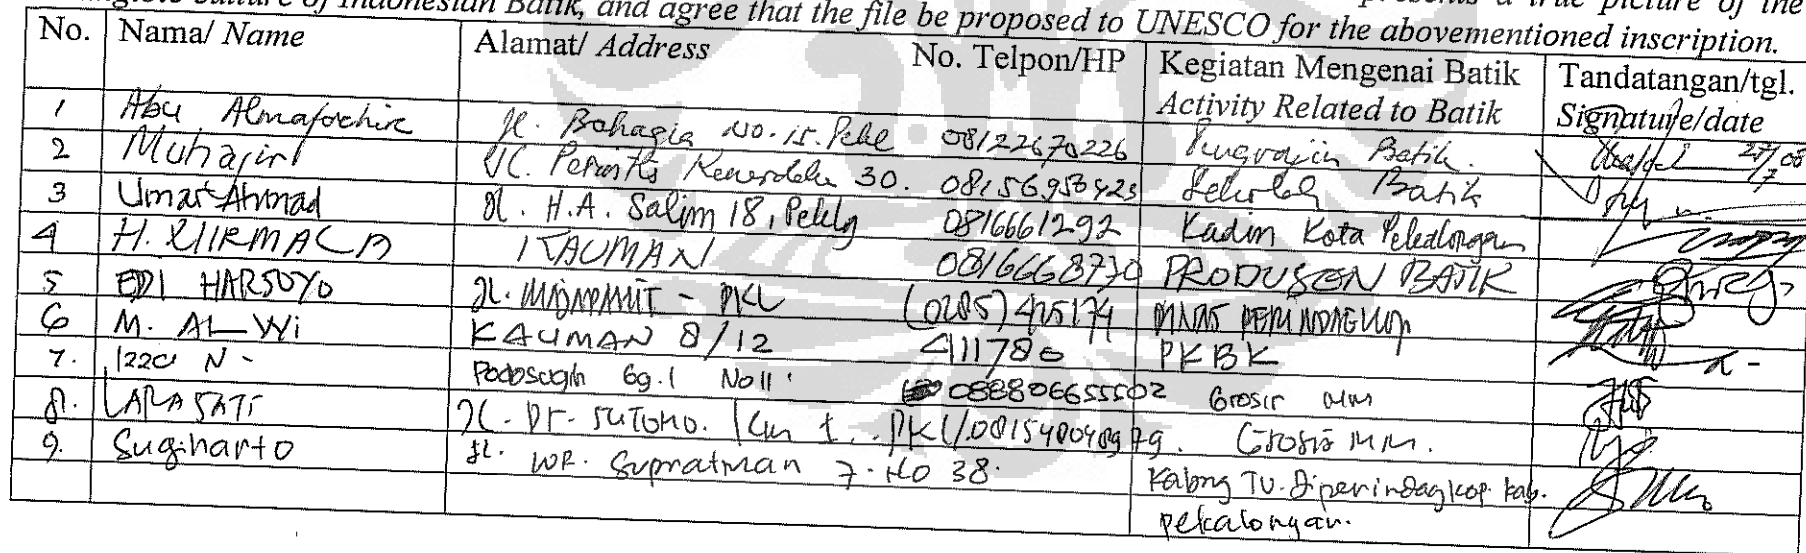 Culture of Indonesian Batik, and agree that the file be proposed to UNESCO for the abovementioned inscription.
a true picture of the
No. Nama/ Name Alamat/ Address No. Telpon/HP Kegiatan Mengenai Batik Tandatangan/tgl.
Activity Related to Batik Signature/date
1 Abu Almafachir Jl. Bahagia No. 15. Pekl 08122670226 Pengrajin Batik. 27/08
7
2 Muhajir 30. 08156950423 Batik
3 Umar Ahmad Jl. H.A. Salim 18, Peklg 0816661292 Kadin Kota Pekalongan
4 H. KAUMAN 0816668730 PRODUSEN BATIK
5 EDI HARSOYO Jl. - PKL (0285) 425174
6 M. ALWi KAUMAN 8/12 411786 PKBK
7. N - Podosugih Gg. 1 No 11 088806655502 Grosir MM
8. LARASATI Jl. Dr. SUTOMO. PKL Grosir M.M.
9. Sugiharto Jl. WR. Supratman 7. No 38. Kabng TU. Diperindagkop. Kab.
pekalongan.